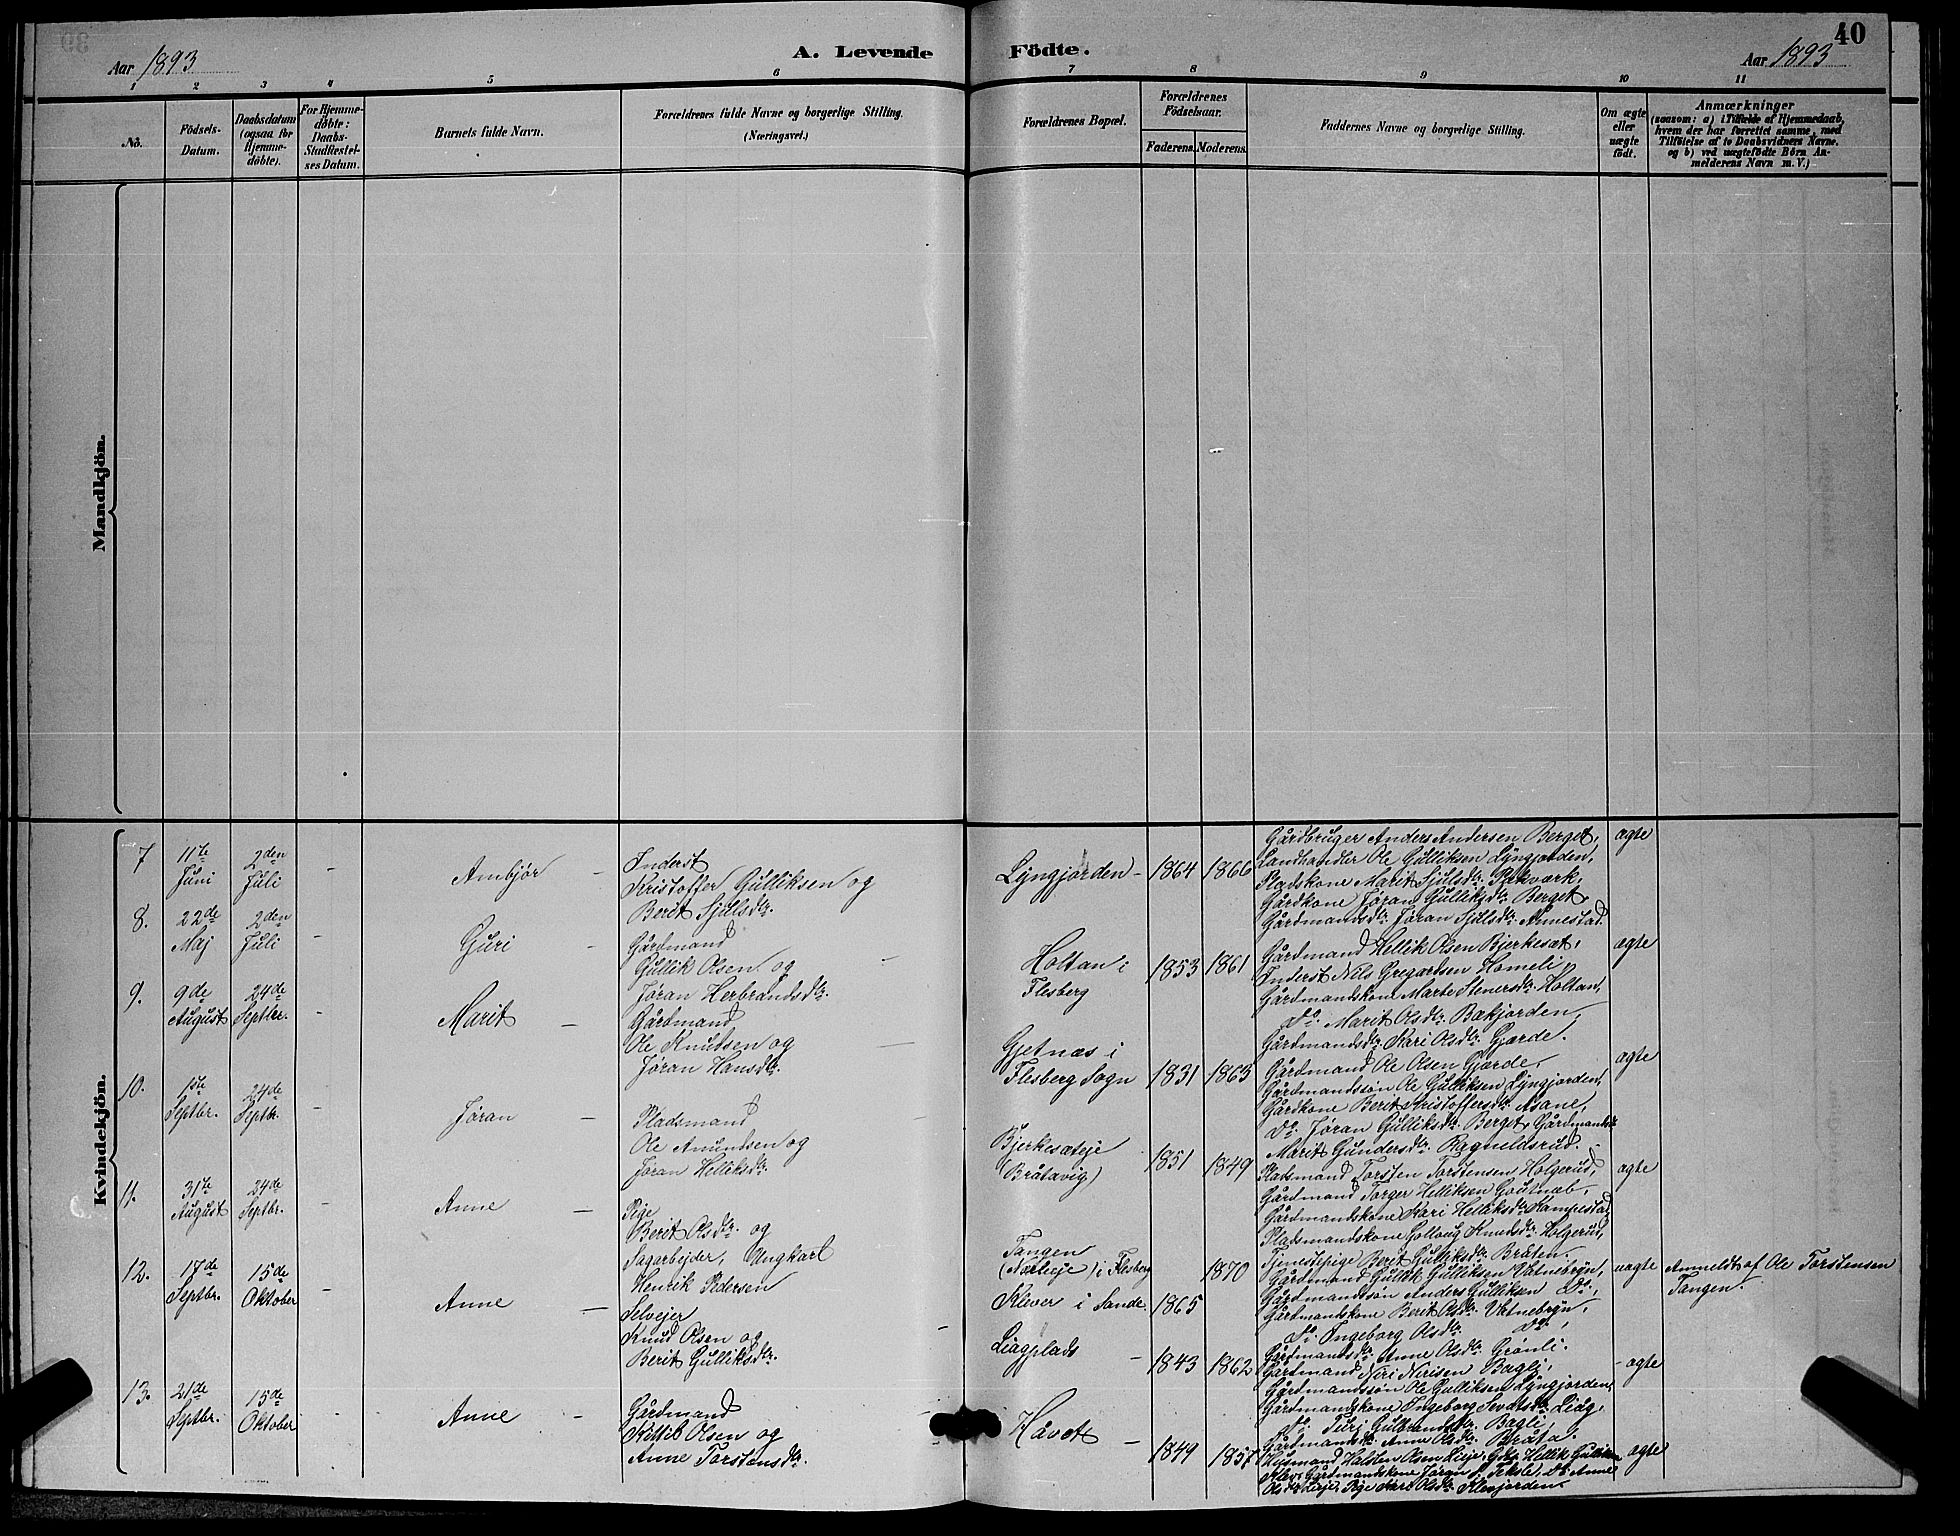 Aar 1893
A. Levende
Födte.
40
Aar 1893
1 2 3 4 5 6 7 8 9 10 11
No.
Födsels-
Datum.
Daabsdatum
(ogsaa for
Hjemme-
döbte).
For Hjemme-
döbte:
Daabs-
Stadfæstel-
ses Datum.
Barnets fulde Navn.
Forældrenes fulde Navne og borgerlige Stilling.
(Næringsvei.)
Forældrenes Bopæl.
Forældrenes
Födselsaar.
Faderens.
Moderens.
Faddernes Navne og borgerlige Stilling.
Om ægte
eller
uægte
födt.
Anmærkninger
(saasom: a) i Tilfælde af Hjemmedaab,
hvem der har forrettet samme, med
Tilföielse af to Daabsvidners Navne.
og b) ved uægtefödte Börn An-
melderens Navn m. V.)
Mandkjön.
Kvindekjön.
7
11te
Juni
2den
Juli
Ambjør
Inderst
Kristoffer Gulliksen og
Berit Sjulsdtr.
Lyngjorden
1864
1866
Gårdbruger Anders Andersen Berget,
Landhandler Ole Gulliksen Lyngjorden,
Pladskone Marit Sjulsdtr.
Gårdkone Jøran Gulliksdtr. Berget,
Gårdmandsdtr. Jøran Sjulsdtr. Annestad.
ægte
8.
22de
Maj
2den
Juli
Guri
Gårdmand
Gullik Olsen og
Jøran Herbrandsdtr.
Holtan i
Flesberg
1853
1861
Gårdmand Hellik Olsen Bjerkesæt,
Inderst Nils Gregardsen Homeli
Gårdmandskone Marte Stenersdtr. Holtan,
Do. Marit Olsdtr. Bækjorden,
Gårdmandsdtr. Kari Olsdtr. Gjærde.
ægte
9.
9de
August
24de
Septbr.
Marit
Gårdmand
Ole Knudsen og
Jøran Hansdtr.
Gjetnæs i
Flesberg Sogn
1831
1863
Gårdmand Ole Olsen Gjærde,
Gårdmandssøn Ole Gulliksen Lyngjorden,
Gårdkone Berit Kristoffersdtr. Åsane,
Do. Jøran Gulliksdtr. Berget, Gårdmandsdtr.
Marit Gundersdtr. Ragneldsrud.
ægte
10.
1ste
Septbr.
24de
Septbr.
Jøran
Pladsmand
Ole Amundsen og
Jøran Helliksdtr.
Bjerkesæteje
(Bråtavig)
1851
1849
Pladsmand Torsten Torstensen Holgerud,
Gårdmand Torger Helliksen
Gårdmandskone Kari Helliksdtr. Kampestad
Pladsmandskone Gollaug Knudsdtr. Holgerud,
Tjenestepige Berit Gulliksdtr. Bråten.
ægte
11.
31te
August
24de
Septbr.
Anne
Pige
Berit Olsdtr. og
Sagarbejder, Ungkarl
Henrik Pedersen
Tangen
i Flesberg
Klever i Sande
1865
1870
Gårdmand Gullik Gulliksen Vatnebryn,
Gårdmandssøn Anders Gulliksen Do.,
Gårdmandskone Berit Olsdtr. Vatnebryn,
Do. Ingeborg Olsdtr. Do.,
Gårdmandsdtr. Anne Olsdtr. Grønli.
uægte
Anmeldt af Ole Torstensen
Tangen.
12.
17de
Septbr.
15de
Oktober
Anne
Selvejer
Knud Olsen og
Berit Gulliksdtr.
Liagplads
1843
1862
Gårdmand Niri Nirisen Bagli,
Gårdmandssøn Ole Gulliksen Lyngjorden,
Gårdmandskone Ingeborg Sevatsdtr. Liag,
Do. Turi Gulbrandsdtr. Bagli,
Gårdmandsdtr. Anne Olsdtr. Bråta.
ægte
13.
21de
Septbr.
15de
Oktober
Anne
Gårdmand
Kittil Olsen og
Anne Torstensdtr.
Håvet
1849
1857
Husmand Halsten Olsen Lieje, Hellik Gulliksen
Klev, Gårdmandskone Jøran Teksle, Do. Anne
Olsdtr. Lieje, Pige Kari Olsdtr. Klevjorden.
ægte